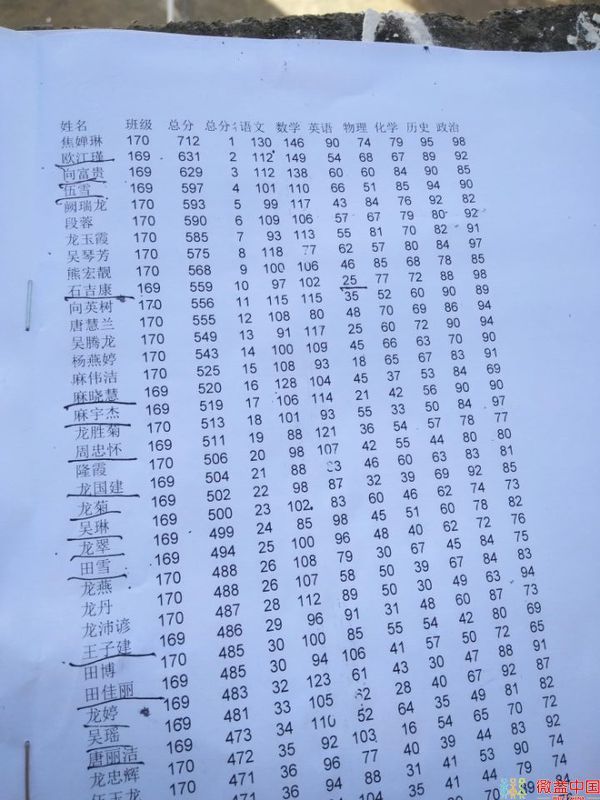 姓名 班级 总分 总分名 语文 数学 英语 物理 化学 历史 政治
焦婵琳 170 712 1 130 146 90 74 79 95 98
欧江瑾 169 631 2 112 149 54 68 67 89 92
向富贵 169 629 3 112 138 60 60 84 90 85
伍雪 169 597 4 101 110 66 51 85 94 90
阙瑞龙 170 593 5 99 117 43 84 76 92 82
段蓉 170 590 6 109 106 57 67 79 80 92
龙玉霞 170 585 7 93 113 55 81 70 82 91
吴琴芳 170 575 8 118 77 62 57 80 84 97
熊宏靓 170 568 9 100 106 46 85 68 78 85
石吉康 169 559 10 97 102 25 77 72 88 98
向英树 170 556 11 115 115 35 52 60 90 89
唐慧兰 170 555 12 108 80 48 70 69 86 94
吴腾龙 170 549 13 91 117 25 60 72 90 94
杨燕婷 170 543 14 100 109 45 66 63 70 90
麻伟洁 170 525 15 108 93 18 65 67 83 91
麻晓慧 169 520 16 128 104 45 37 53 84 69
麻宇杰 169 519 17 106 114 21 42 56 90 90
龙胜菊 170 513 18 101 93 55 33 50 84 97
周忠怀 169 511 19 88 121 36 54 57 78 77
隆霞 170 506 20 98 107 42 55 44 80 80
龙国建 169 504 21 88 83 46 60 63 83 81
龙菊 169 502 22 98 87 32 39 69 92 85
吴琳 169 500 23 102 83 60 46 62 74 73
龙翠 169 499 24 85 98 45 51 60 78 82
田雪 169 494 25 100 96 48 40 62 72 76
龙燕 170 488 26 108 79 30 67 45 84 75
龙丹 170 488 26 107 58 50 39 67 84 83
龙沛谚 170 487 28 112 89 50 30 49 63 94
王子建 169 486 29 96 91 31 48 60 87 73
田博 170 485 30 100 85 55 54 42 80 69
田佳丽 169 485 30 94 106 41 57 50 72 65
龙婷 169 483 32 123 61 43 30 47 88 91
吴瑶 170 481 33 105 62 28 40 67 92 87
唐丽洁 169 473 34 110 52 64 35 49 81 82
龙忠辉 170 472 35 92 103 16 54 65 70 72
伍玉龙 170 471 36 96 77 40 39 44 83 92
471 36 94 88 31 41 53 90 74
微益中国